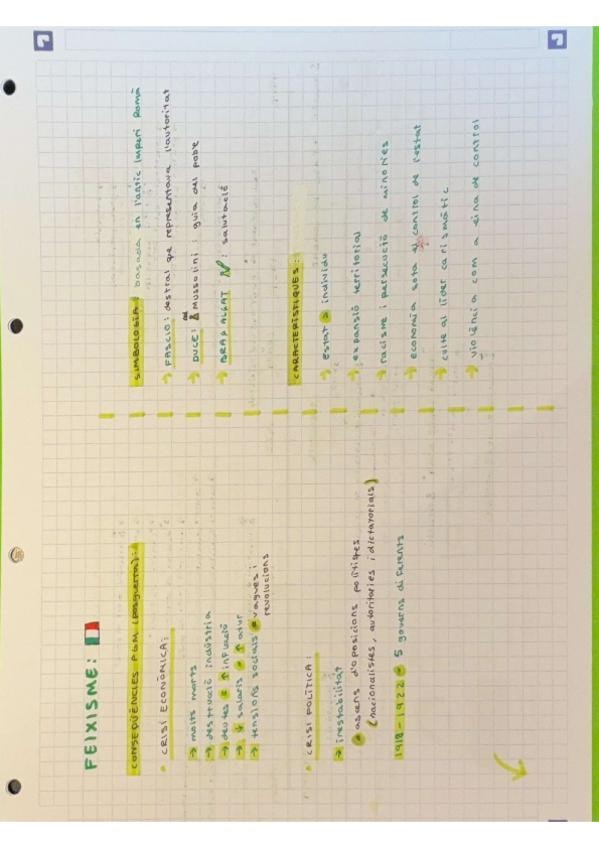 FEIXISME:
CONSEQÜÈNCIES PGM (posguerra):
• CRISI ECONÒMICA:
→ molts morts
→ destrucció indústria
→ deutes = ↑ inflació
→ ↓ salaris → ↑ atur
→ tensions socials → vagues i
revolucions
• CRISI POLÍTICA:
→ inestabilitat
→ ascens d'oposicions polítiques
(nacionalistes, autoritaries i dictatorials)
1918-1922 → 5 governs diferents
SIMBOLOGIA: basada en l'antic Imperi Romà
→ FASCIO: destral que representava l'autoritat
→ DUCE: Mussolini: guia del poble
→ BRAÇ ALÇAT: salutació
CARACTERÍSTIQUES:
→ estat > individu
→ expansió territorial
→ racisme i persecució de minories
→ economia sota el control de l'estat
→ culte al líder carismàtic
→ violència com a eina de control